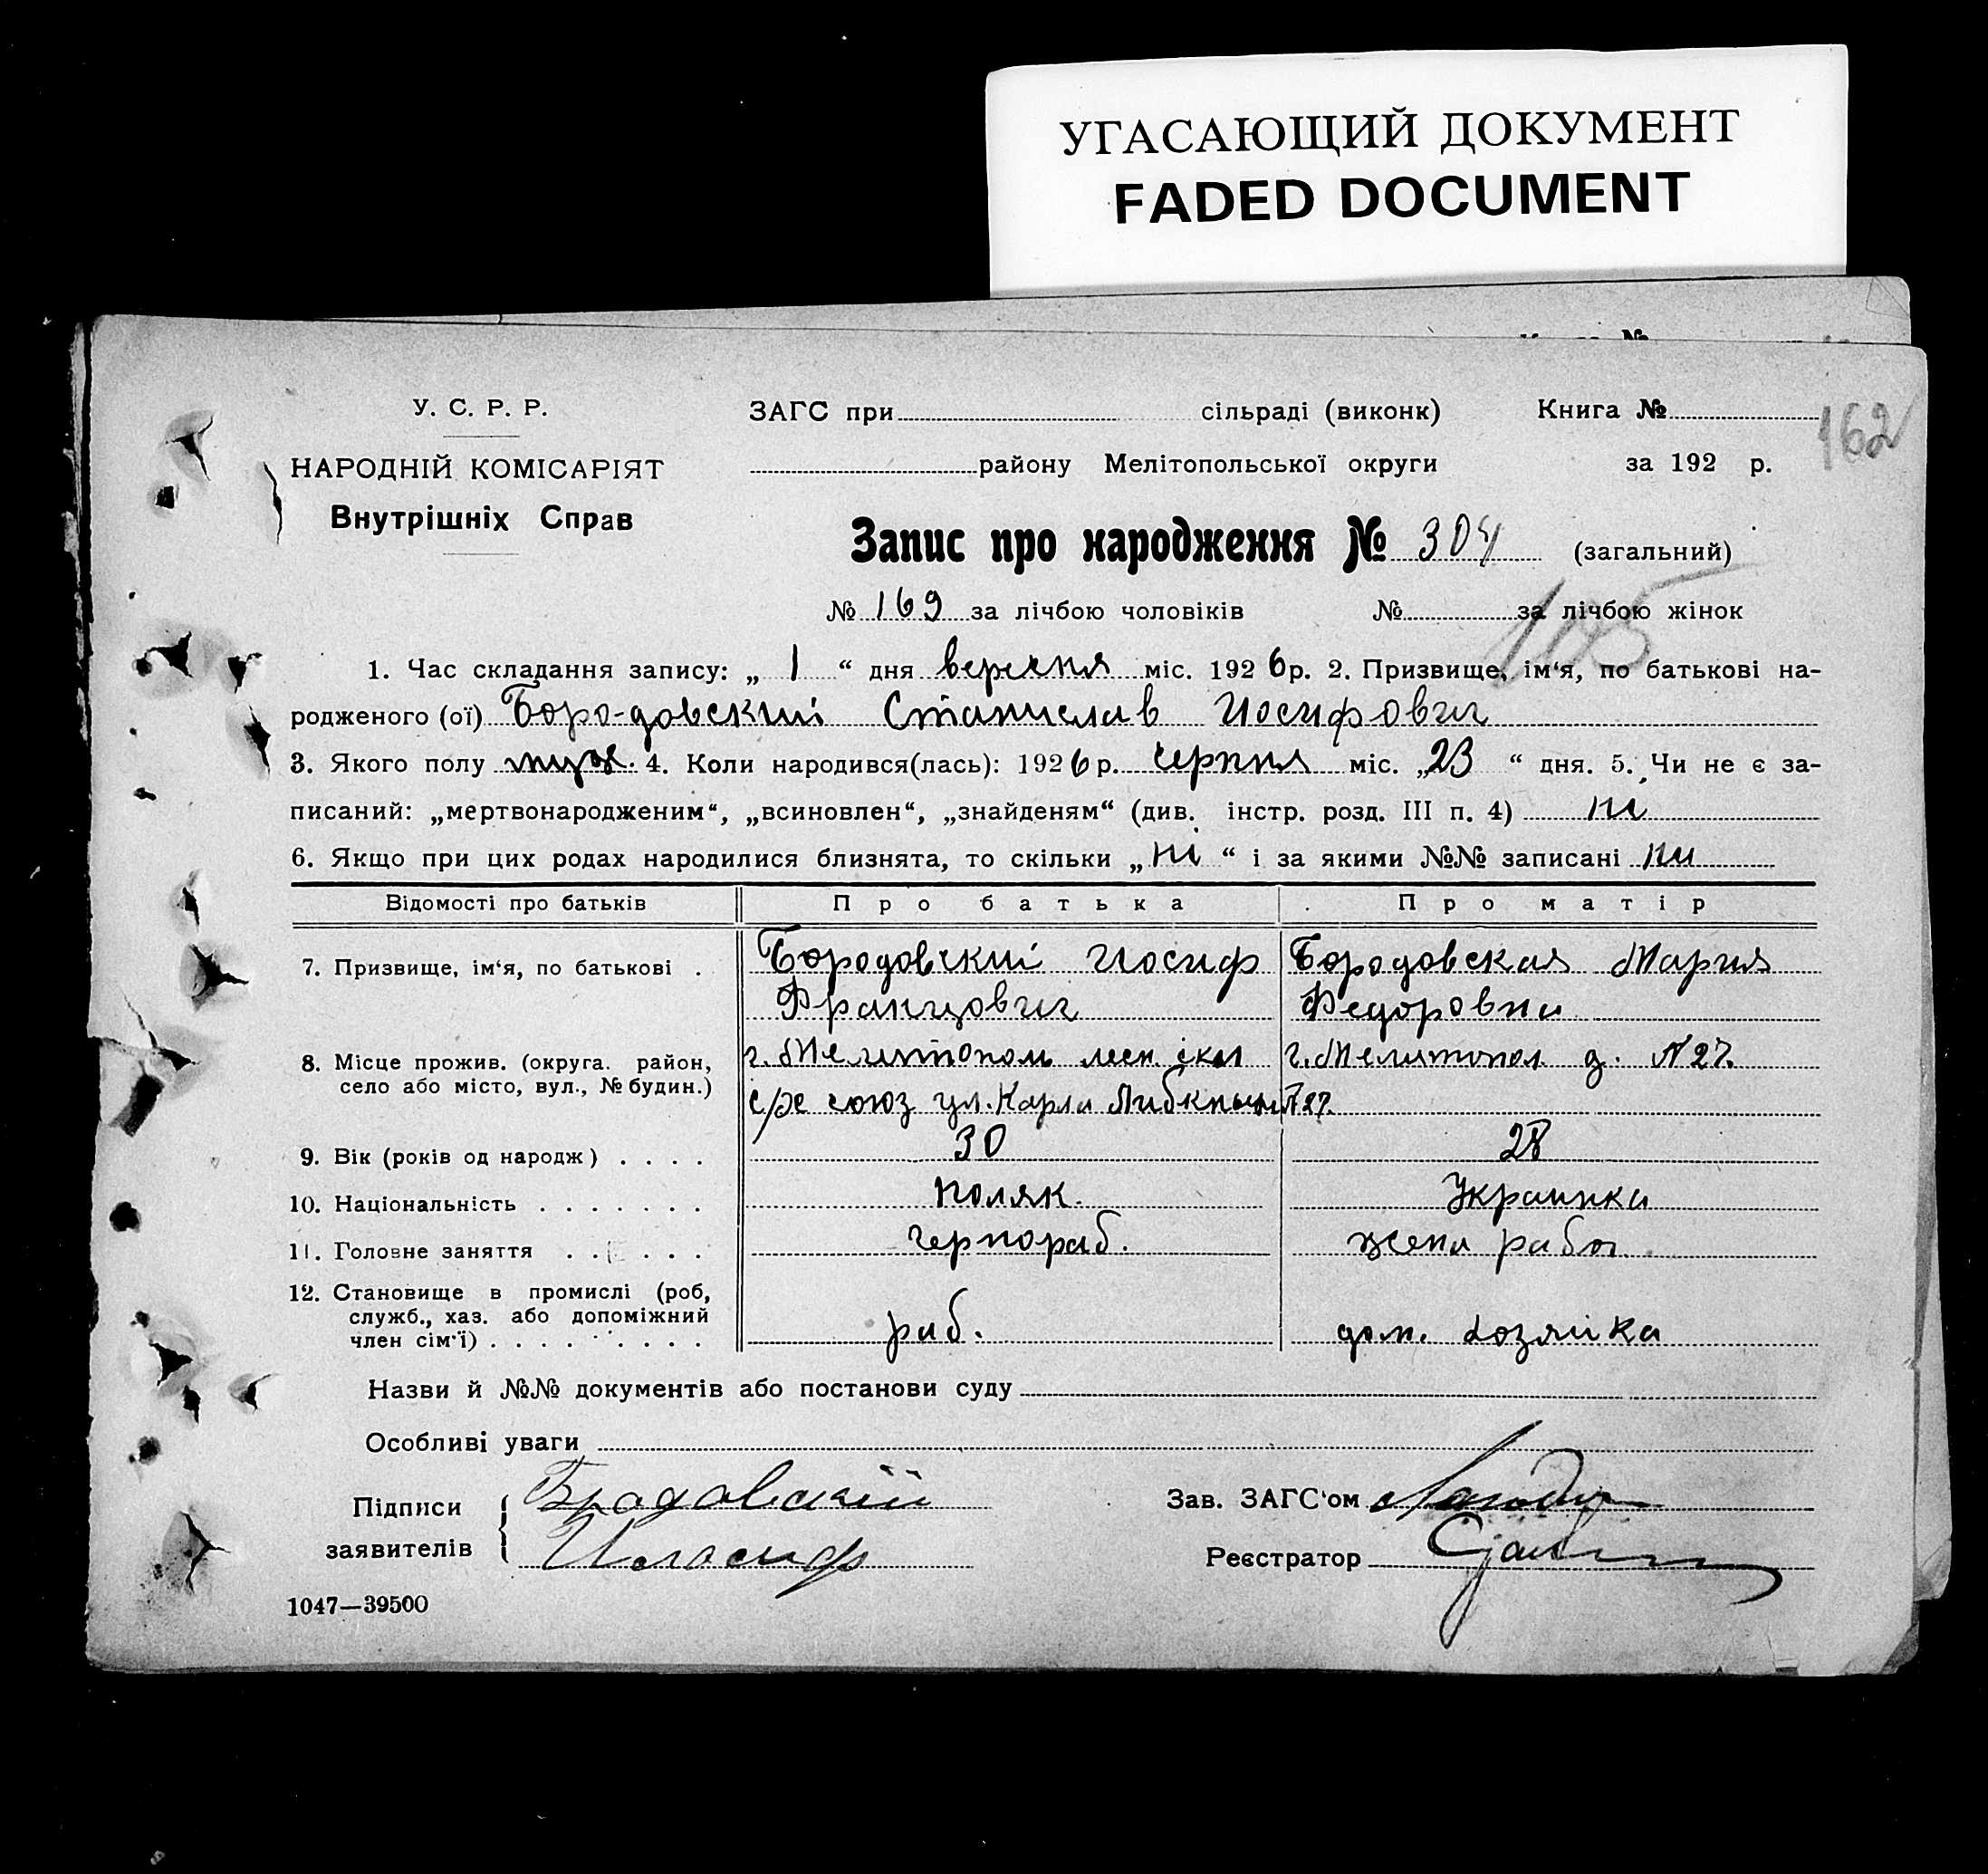 УГАСАЮЩИЙ ДОКУМЕНТ
FADED DOCUMENT
У. С. Р. Р.
НАРОДНІЙ КОМІСАРІЯТ
Внутрішніх Справ
ЗАГС при сільраді (виконк) Книга №
162
району Мелітопольської округи за 192 р.
Запис про народження № 304 (загальний)
№ 169 за лічбою чоловіків № за лічбою жінок
1. Час складання запису: „ 1 “ дня вересня міс. 1926 р. 2. Призвище, ім‘я, по батькові на-
родженого (ої) Боро-довский Станислав Иосифович
3. Якого полу муж. 4. Коли народився(лась): 1926 р. серпня міс. „23 “ дня. 5. Чи не є за-
писаний: „мертвонародженим“, „всиновлен“, „знайденям“ (див. інстр. розд. III п. 4) ні
6. Якщо при цих родах народилися близнята, то скільки „ні “ і за якими №№ записані ни
Відомості про батьків Про батька Про матір
7. Призвище, ім‘я, по батькові . Бородовский Иосиф Бородовская Мария
Францович Федоровна
8. Місце прожив. (округа. район, г. Мелитополь г. Мелитопол д. №27.
село або місто, вул., № будин.) с/х союз ул. Карла №27.
9. Вік (років од народж) . . . . 30 28
10. Національність . . . . . . . поляк. Украинка
11. Головне заняття . . . . . . чернораб. жена рабоч.
12. Становище в промислі (роб,
служб., хаз. або допоміжний
член сім‘ї) . . . . . . . . . раб. дом. хозяйка
Назви й №№ документів або постанови суду
Особливі уваги
Підписи Бродовский Зав. ЗАГС‘ом
заявителів Реєстратор
1047—39500